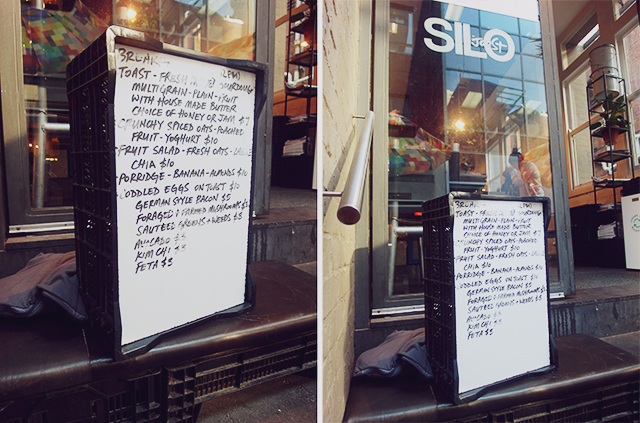 TOAST - FRESH @ SOURDOUGH
MULTIGRAIN - PLAIN - FRUIT
WITH HOUSE MADE BUTTER
CHOICE OF HONEY OR JAM $7
CRUNCHY SPICED OATS - POACHED
FRUIT - YOGHURT $10
FRUIT SALAD - FRESH OATS -
CHIA $10
PORRIDGE - BANANA - ALMONDS $10
CODDLED EGGS ON TOAST $10
GERMAN STYLE BACON $5
FORAGED & FARMED MUSHROOMS
SAUTEED GREENS + WEEDS $5
AVOCADO
KIM CHI
FETA $3
SILO
TOAST
MULTIGRAIN - PLAIN - FRUIT
WITH HOUSE MADE BUTTER
CHOICE OF HONEY OR JAM $7
CRUNCHY SPICED OATS - POACHED
FRUIT - YOGHURT $10
FRUIT SALAD - FRESH OATS -
CHIA $10
PORRIDGE - BANANA - ALMONDS $10
CODDLED EGGS ON TOAST $10
GERMAN STYLE BACON $5
FORAGED & FARMED MUSHROOMS
SAUTEED GREENS + WEEDS $5
AVOCADO
KIM CHI
FETA $3